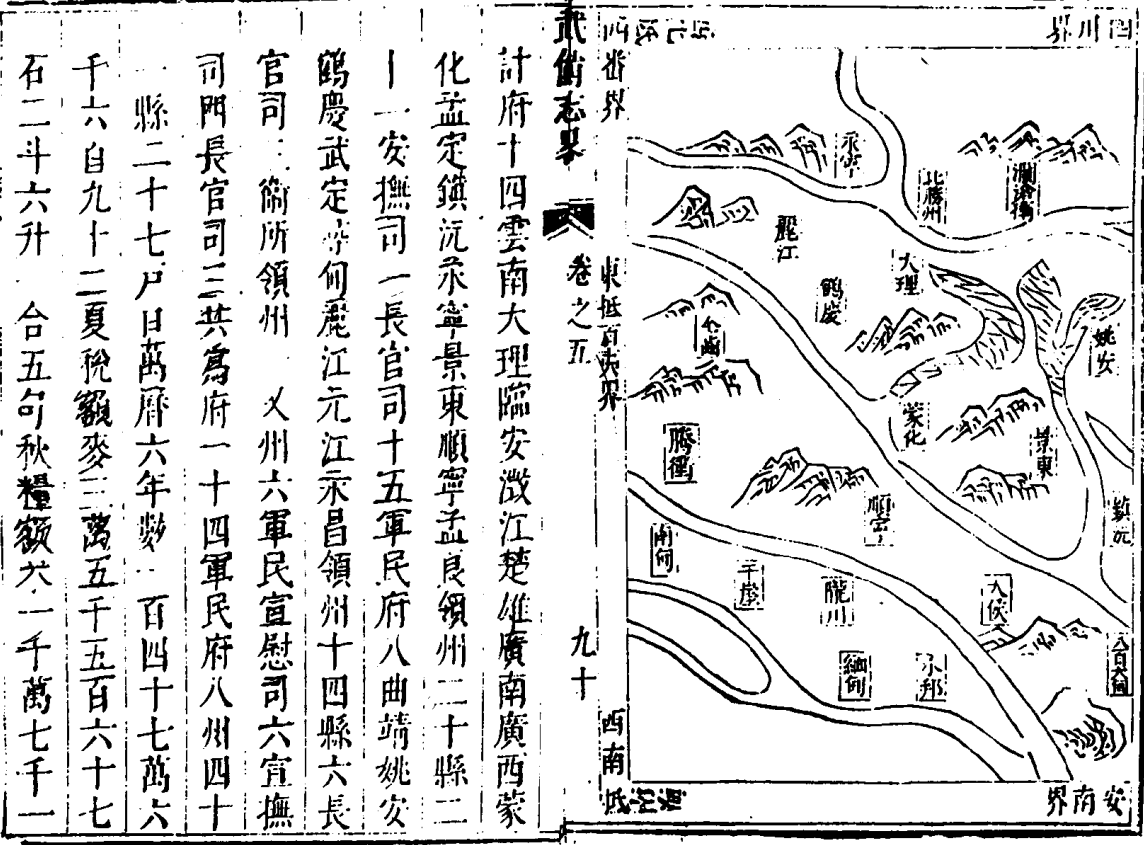 四川界
永寧
北勝州
瀾滄衛
麗江
鶴慶
大理
姚安
金齒
蒙化
景東
騰衝
順寧
鎮沅
南甸
干崖
隴川
大侯
緬甸
木邦
八百大甸
安南界
西番界
西南
抵
武備志畧
卷之五
九十
計府十四雲南大理臨安澂江楚雄廣南廣西蒙
化孟定鎮沅永寧景東順寧孟艮領州二十縣二
十一安撫司一長官司十五軍民府八曲靖姚安
鶴慶武定尋甸麗江元江永昌領州十四縣六長
官司二衛所領州 州六軍民宣慰司六宣撫
司 長官司三共爲府一十四軍民府八州四十
一縣二十七戸口萬曆六年數一百四十七萬六
千六百九十二夏稅額麥三萬五千五百六十七
石二斗六升 合五勺秋糧額米一千萬七千一